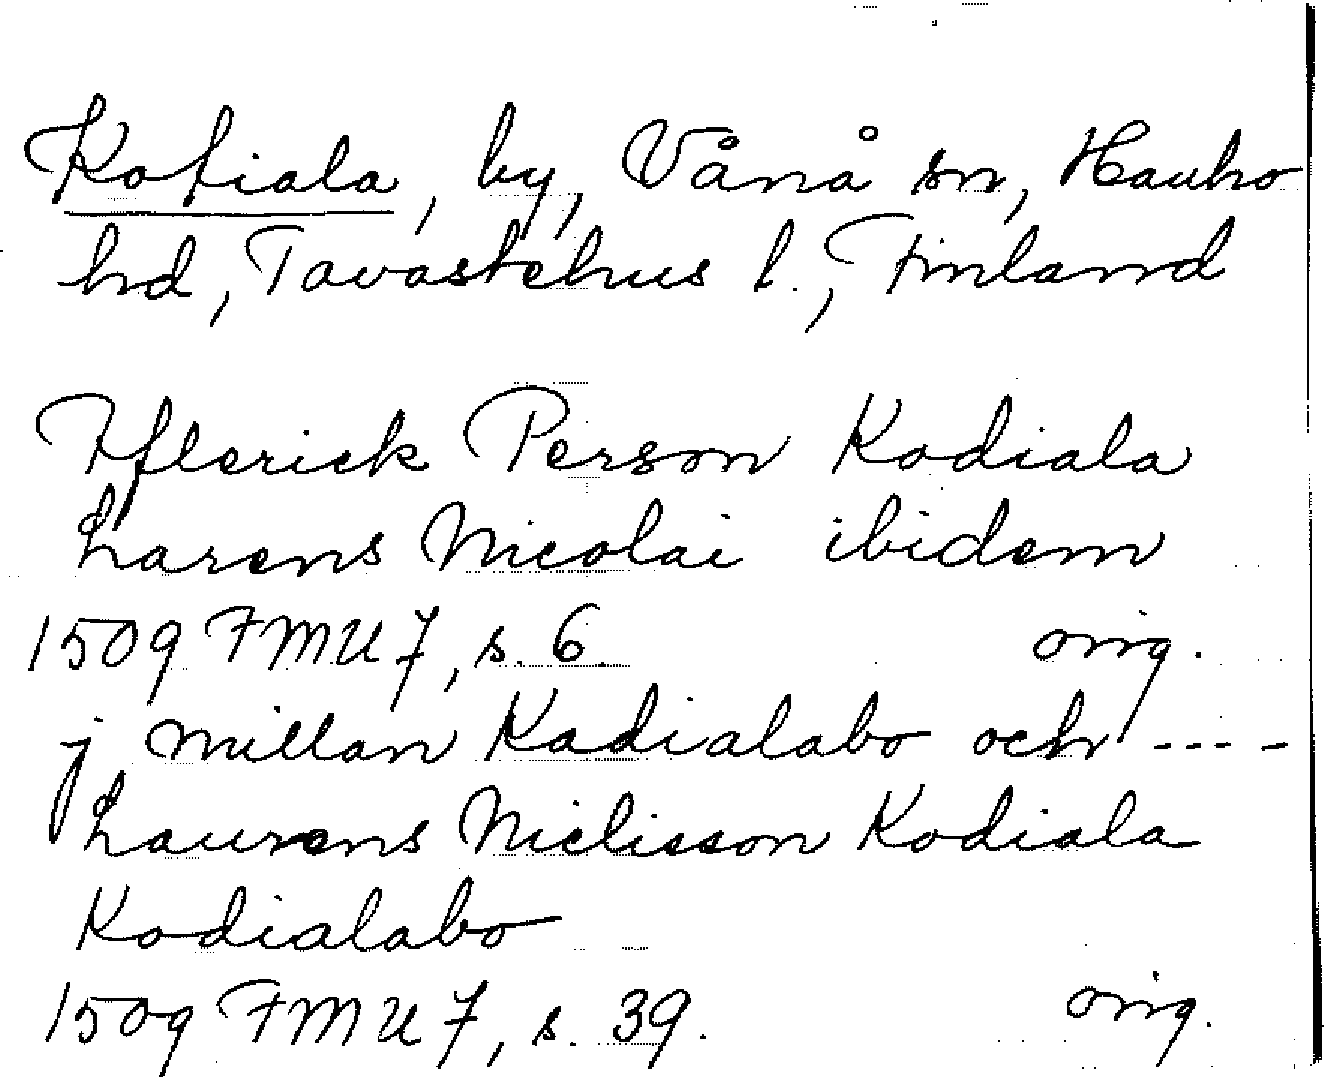 Kotiala, by, Vånå sn, Hauho
hd, Tavastehus l., Finland
Pflerick Person Kodiala
Larens Nicolai ibidem
1509 FMU 7, s. 6. orig.
j millan Kadialabo och ----
Laurens Nielisson Kodiala
Kodialabo
1509 FMU 7, s. 39. orig.